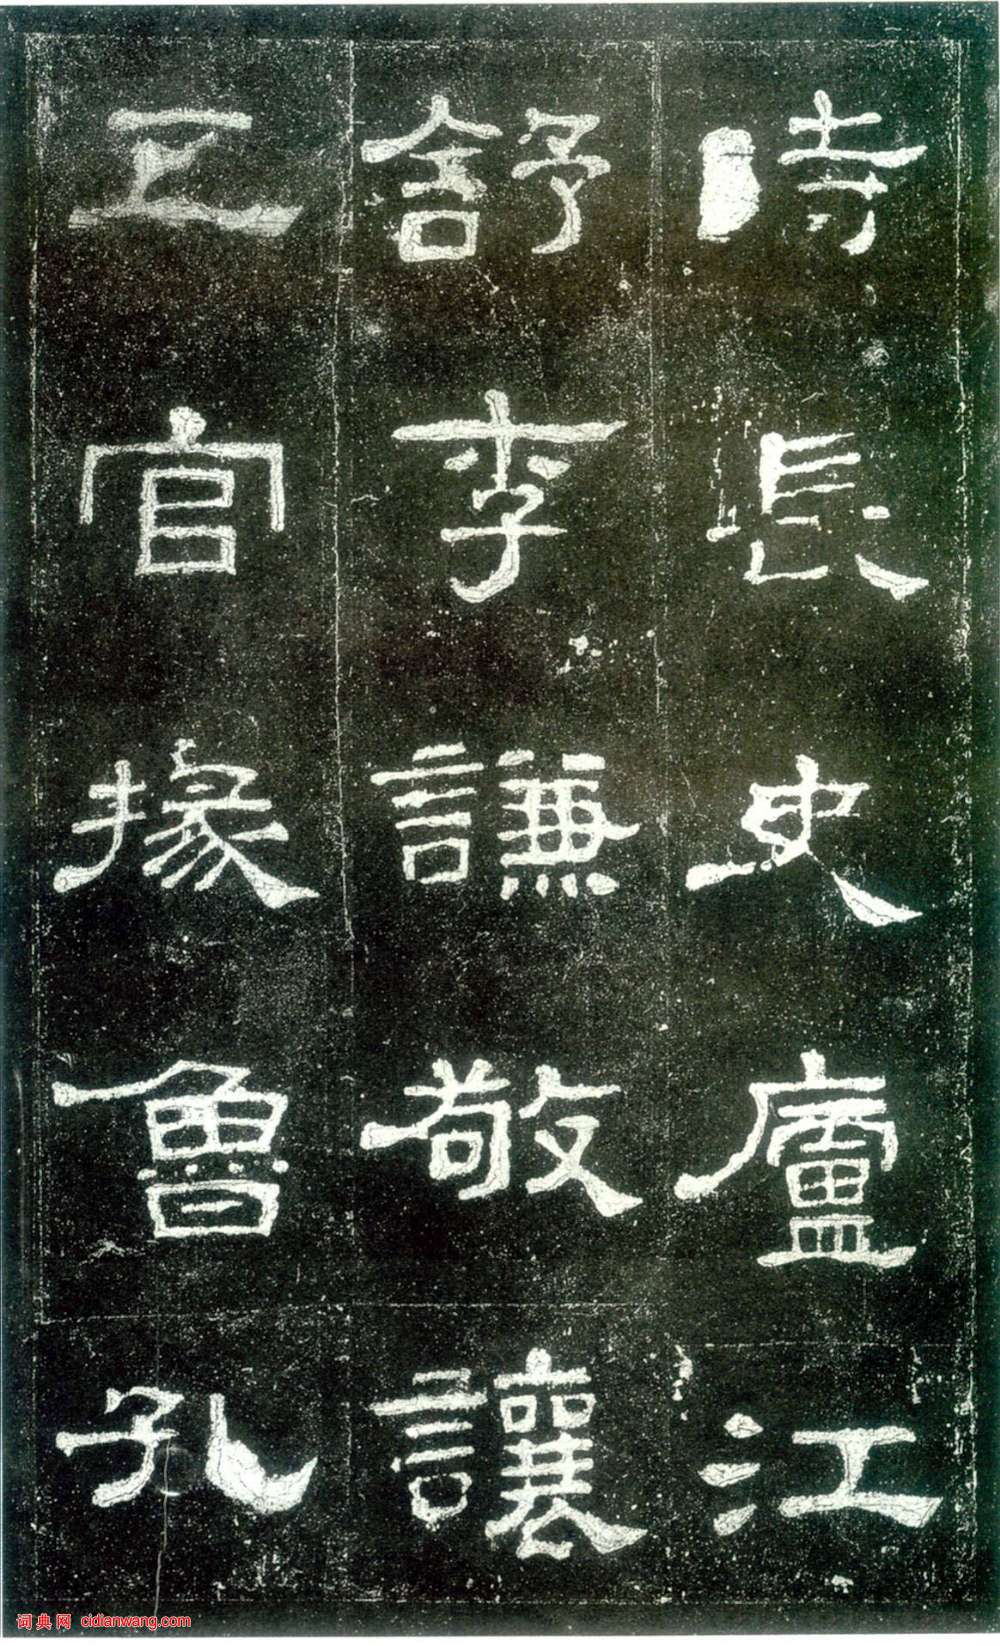 時長史廬江
舒李謙敬讓
五官掾魯孔
词典网 cidianwang.com